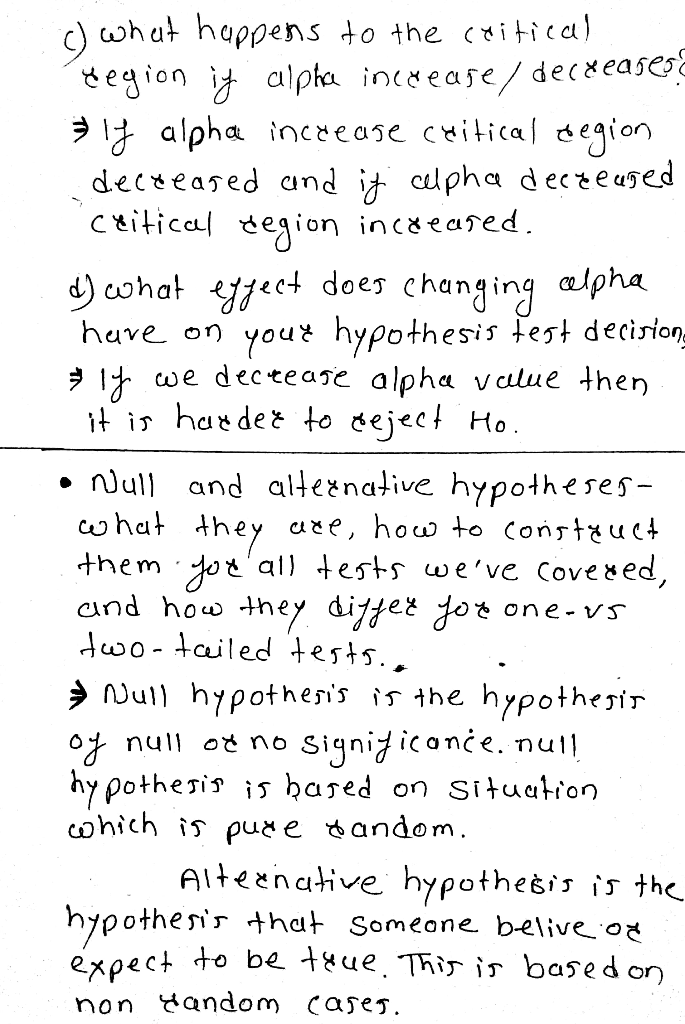 c) what happens to the critical
region if alpha increase/decreases?
⇒ If alpha increase critical region
decreased and if alpha decreased
critical region increased.
d) what effect does changing alpha
have on your hypothesis test decision,
⇒ If we decrease alpha value then
it is harder to reject Ho.
• Null and alternative hypotheses-
what they are, how to construct
them for all tests we've covered,
and how they differ for one-vs
two-tailed tests.
⇒ Null hypothesis is the hypothesis
of null or no significance. null
hypothesis is based on situation
which is pure random.
Alternative hypothesis is the
hypothesis that someone belive or
expect to be true. This is based on
non random cases.